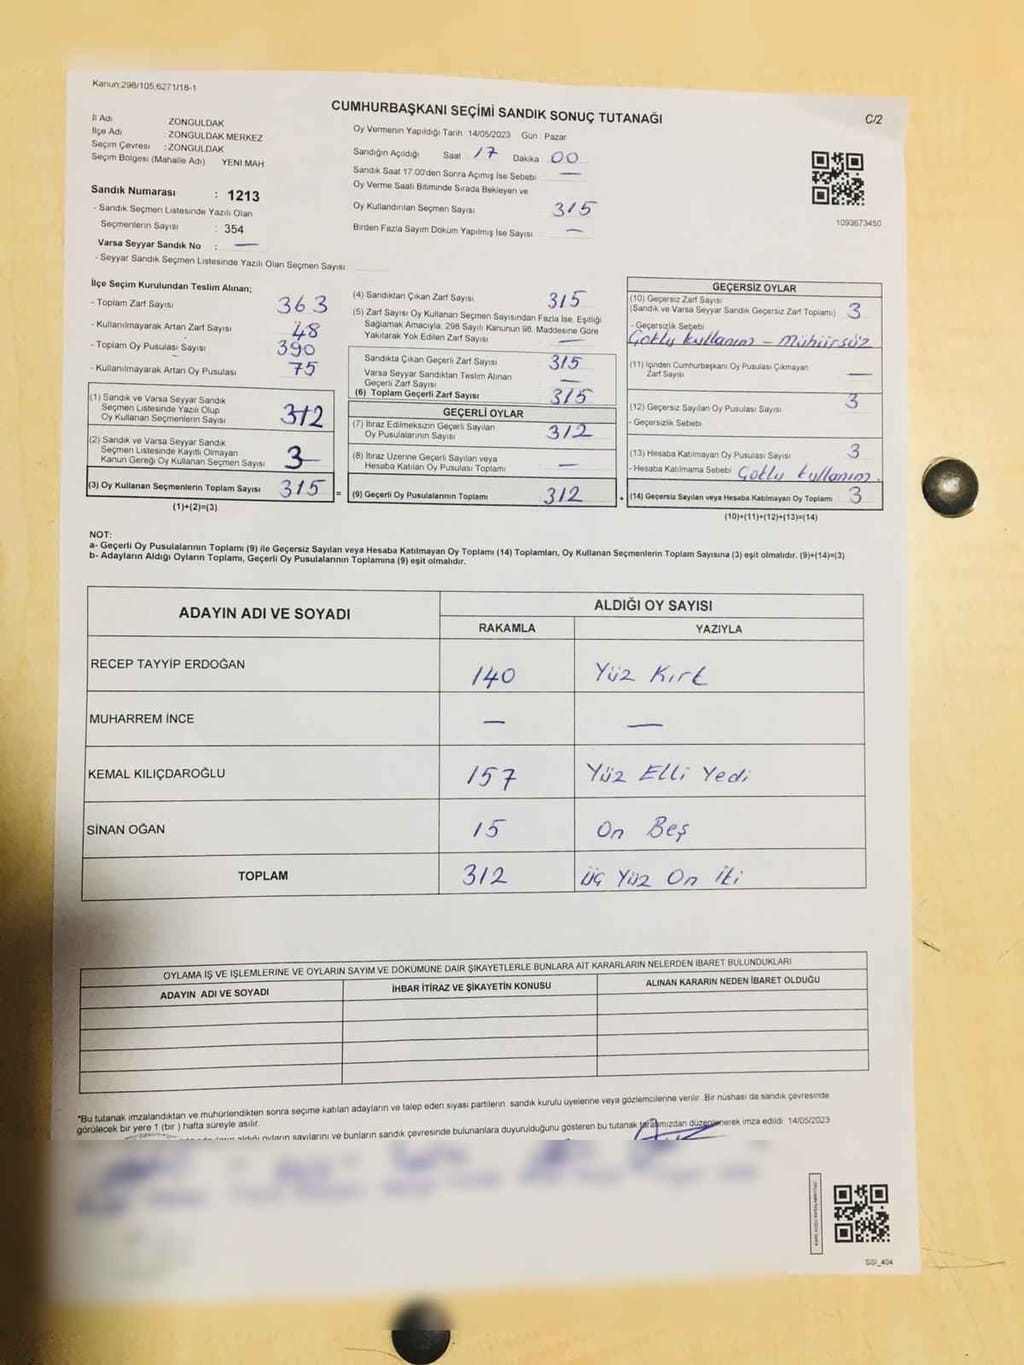 Kanun:298/105,6271/18-1
CUMHURBAŞKANI SEÇİMİ SANDIK SONUÇ TUTANAĞI
C/2
İl Adı ZONGULDAK
İlçe Adı : ZONGULDAK MERKEZ
Seçim Çevresi : ZONGULDAK
Seçim Bölgesi (Mahalle Adı) YENİ MAH
Sandık Numarası : 1213
- Sandık Seçmen Listesinde Yazılı Olan
Seçmenlerin Sayısı : 354
Varsa Seyyar Sandık No : —
- Seyyar Sandık Seçmen Listesinde Yazılı Olan Seçmen Sayısı
Oy Vermenin Yapıldığı Tarih :14/05/2023 Gün : Pazar
Sandığın Açıldığı Saat 17 Dakika 00
Sandık Saat 17.00'den Sonra Açımış İse Sebebi —
Oy Verme Saati Bitiminde Sırada Bekleyen ve
Oy Kullandırılan Seçmen Sayısı 315
Birden Fazla Sayım Döküm Yapılmış İse Sayısı —
1093673450
İlçe Seçim Kurulundan Teslim Alınan;
- Toplam Zarf Sayısı 363
- Kullanılmayarak Artan Zarf Sayısı 48
- Toplam Oy Pusulası Sayısı 390
- Kullanılmayarak Artan Oy Pusulası 75
(1) Sandık ve Varsa Seyyar Sandık
Seçmen Listesinde Yazılı Olup
Oy Kullanan Seçmenlerin Sayısı 312
(2) Sandık ve Varsa Seyyar Sandık
Seçmen Listesinde Kayıtlı Olmayan
Kanun Gereği Oy Kullanan Seçmen Sayısı 3
(3) Oy Kullanan Seçmenlerin Toplam Sayısı 315 =
(1)+(2)=(3)
(4) Sandıktan Çıkan Zarf Sayısı 315
(5) Zarf Sayısı Oy Kullanan Seçmen Sayısından Fazla İse, Eşitliği
Sağlamak Amacıyla, 298 Sayılı Kanunun 98. Maddesine Göre
Yakılarak Yok Edilen Zarf Sayısı —
Sandıkta Çıkan Geçerli Zarf Sayısı 315
Varsa Seyyar Sandıktan Teslim Alınan
Geçerli Zarf Sayısı —
(6) Toplam Geçerli Zarf Sayısı 315
GEÇERLİ OYLAR
(7) İtiraz Edilmeksizin Geçerli Sayılan
Oy Pusulalarının Sayısı 312
(8) İtiraz Üzerine Geçerli Sayılan veya
Hesaba Katılan Oy Pusulası Toplamı —
(9) Geçerli Oy Pusulalarının Toplamı 312 +
GEÇERSİZ OYLAR
(10) Geçersiz Zarf Sayısı
(Sandık ve Varsa Seyyar Sandık Geçersiz Zarf Toplamı) 3
- Geçersizlik Sebebi
Çoklu kullanım - Mühürsüz
(11) İçinden Cumhurbaşkanı Oy Pusulası Çıkmayan
Zarf Sayısı —
(12) Geçersiz Sayılan Oy Pusulası Sayısı 3
- Geçersizlik Sebebi
(13) Hesaba Katılmayan Oy Pusulası Sayısı 3
- Hesaba Katılmama Sebebi Çoklu kullanım.
(14) Geçersiz Sayılan veya Hesaba Katılmayan Oy Toplamı 3
(10)+(11)+(12)+(13)=(14)
NOT:
a- Geçerli Oy Pusulalarının Toplamı (9) ile Geçersiz Sayılan veya Hesaba Katılmayan Oy Toplamı (14) Toplamları, Oy Kullanan Seçmenlerin Toplam Sayısına (3) eşit olmalıdır. (9)+(14)=(3)
b- Adayların Aldığı Oyların Toplamı, Geçerli Oy Pusulalarının Toplamına (9) eşit olmalıdır.
ADAYIN ADI VE SOYADI
ALDIĞI OY SAYISI
RAKAMLA YAZIYLA
RECEP TAYYİP ERDOĞAN 140 Yüz Kırk
MUHARREM İNCE — —
KEMAL KILIÇDAROĞLU 157 Yüz Elli Yedi
SİNAN OĞAN 15 On Beş
TOPLAM 312 Üç Yüz On İki
OYLAMA İŞ VE İŞLEMLERİNE VE OYLARIN SAYIM VE DÖKÜMÜNE DAİR ŞİKAYETLERLE BUNLARA AİT KARARLARIN NELERDEN İBARET BULUNDUKLARI
ADAYIN ADI VE SOYADI İHBAR İTİRAZ VE ŞİKAYETİN KONUSU ALINAN KARARIN NEDEN İBARET OLDUĞU
*Bu tutanak imzalandıktan ve mühürlendikten sonra seçime katılan adayların ve talep eden siyasi partilerin sandık kurulu üyelerine veya gözlemcilerine verilir. Bir nüshası da sandık çevresinde
görülecek bir yere 1 (bir ) hafta süreyle asılır.
aldığı oyların sayılarını ve bunların sandık çevresinde bulunanlara duyurulduğunu gösteren bu tutanak tarafımızdan düzenlenerek imza edildi 14/05/2023
SSI_404